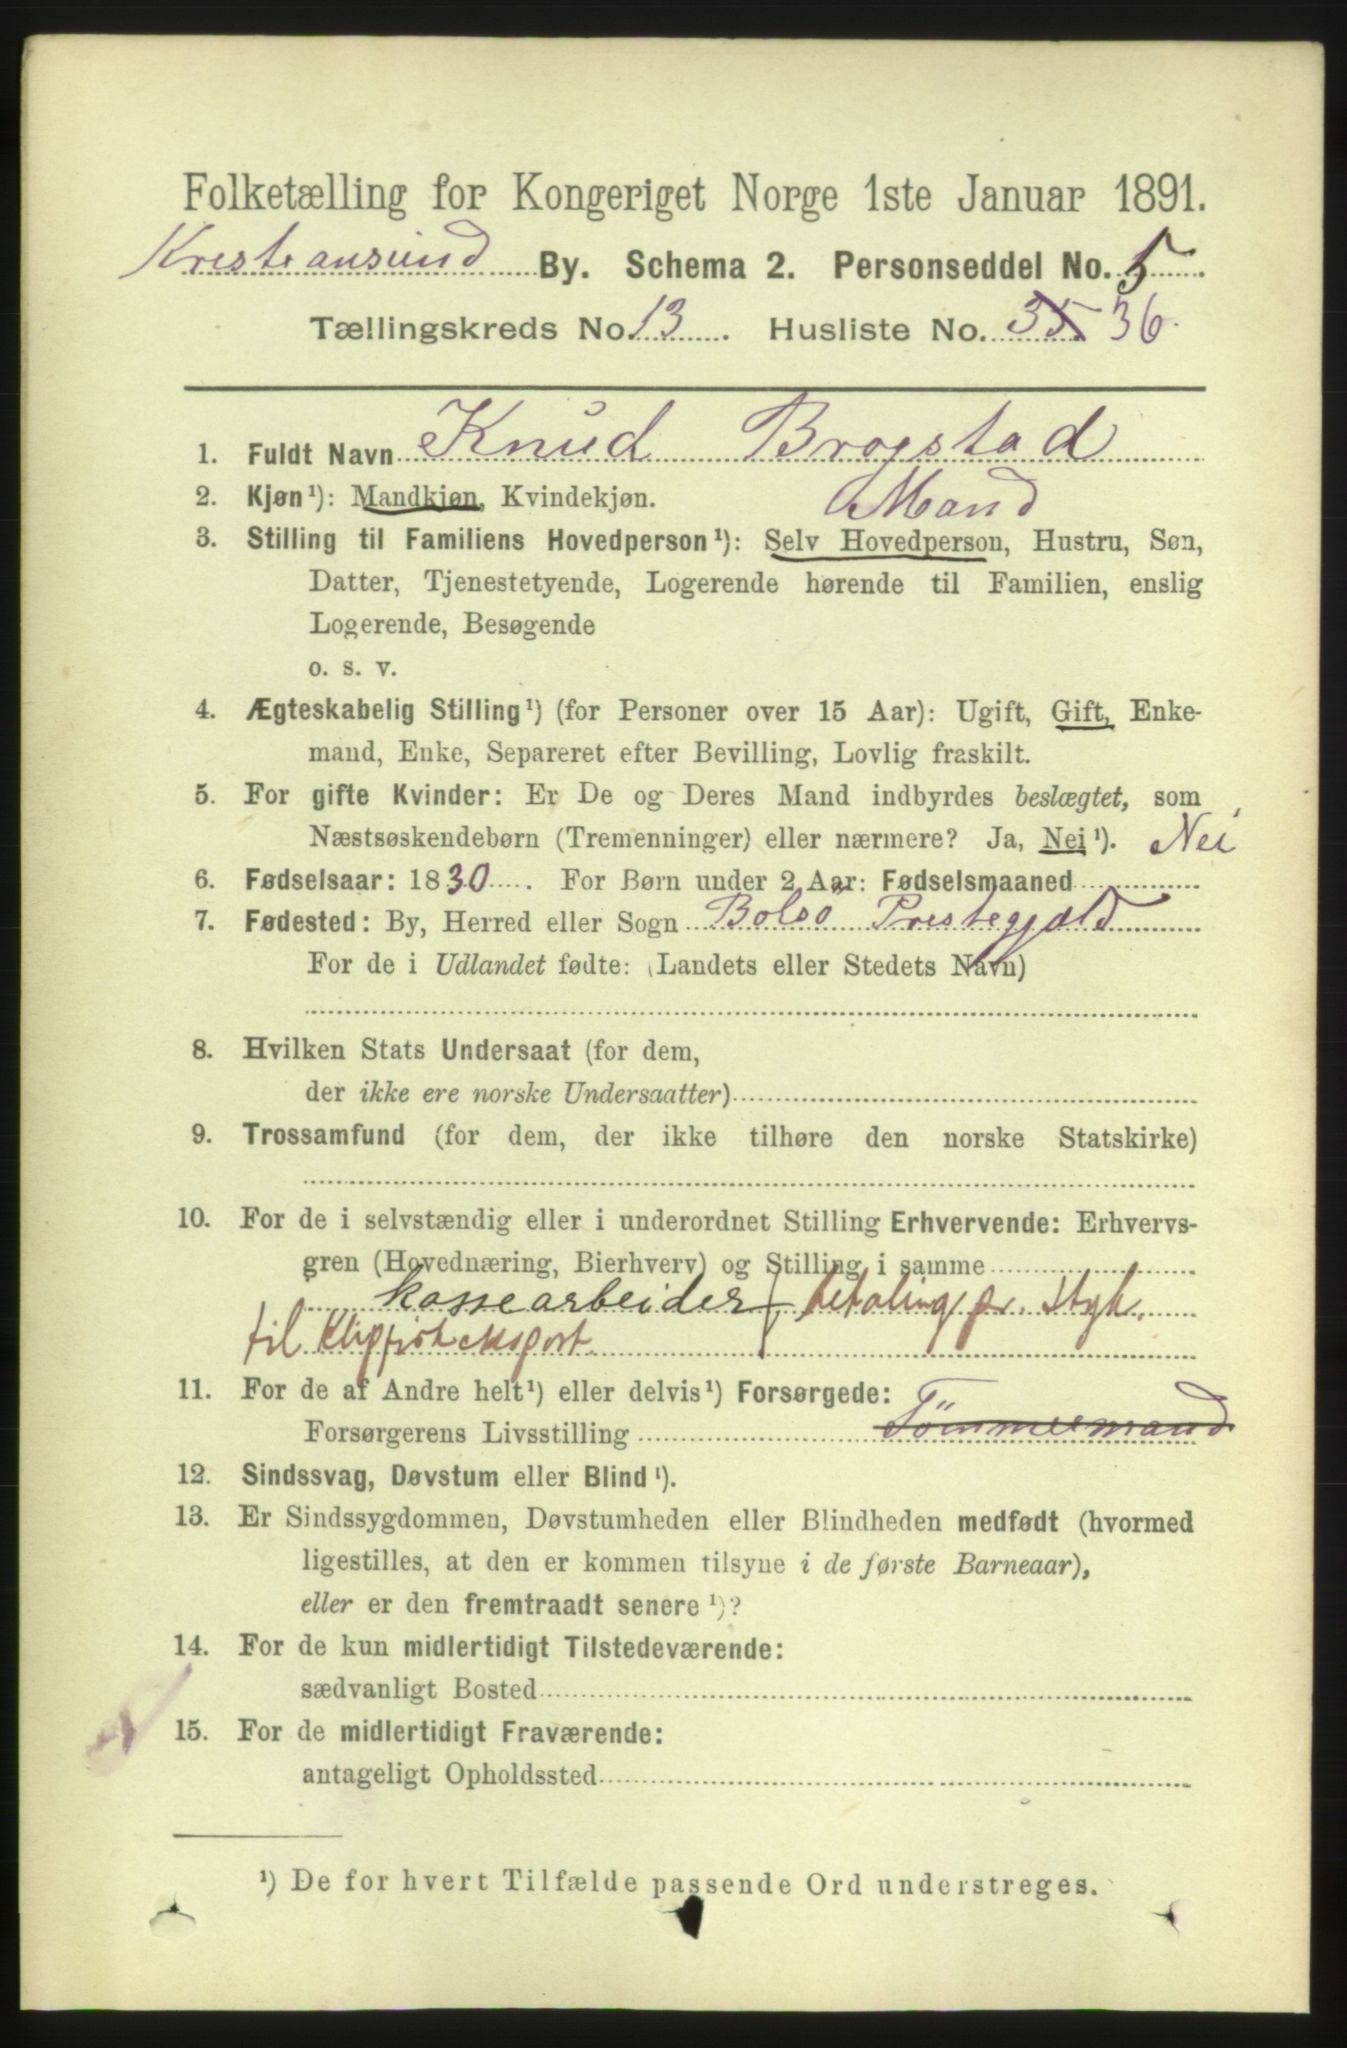 Folketælling for Kongeriget Norge 1ste Januar 1891.
Kristiansund By. Schema 2. Personseddel No. 5
Tællingskreds No. 13. Husliste No. 35 36.
1. Fuldt Navn Knud Brogstad
2. Kjøn¹): Mandkjøn, Kvindekjøn. Mand
3. Stilling til Familiens Hovedperson¹): Selv Hovedperson, Hustru, Søn,
Datter, Tjenestetyende, Logerende hørende til Familien, enslig
Logerende, Besøgende
o. s. v.
4. Ægteskabelig Stilling¹) (for Personer over 15 Aar): Ugift, Gift, Enke-
mand, Enke, Separeret efter Bevilling, Lovlig fraskilt.
5. For gifte Kvinder: Er De og Deres Mand indbyrdes beslægtet, som
Næstsøskendebørn (Tremenninger) eller nærmere? Ja, Nei¹). Nei
6. Fødselsaar: 1830. For Børn under 2 Aar: Fødselsmaaned
7. Fødested: By, Herred eller Sogn Bolsö Prestegjæld
For de i Udlandet fødte: (Landets eller Stedets Navn)
8. Hvilken Stats Undersaat (for dem,
der ikke ere norske Undersaatter)
9. Trossamfund (for dem, der ikke tilhøre den norske Statskirke)
10. For de i selvstændig eller i underordnet Stilling Erhvervende: Erhvervs-
gren (Hovednæring, Bierhverv) og Stilling i samme
kassearbeider, betaling pr. Styk.
til Klipfiskeksport
11. For de af Andre helt¹) eller delvis¹) Forsørgede:
Forsørgerens Livsstilling Tömmermand
12. Sindssvag, Døvstum eller Blind¹).
13. Er Sindssygdommen, Døvstumheden eller Blindheden medfødt (hvormed
ligestilles, at den er kommen tilsyne i de første Barneaar),
eller er den fremtraadt senere¹)?
14. For de kun midlertidigt Tilstedeværende:
sædvanligt Bosted
15. For de midlertidigt Fraværende:
antageligt Opholdssted
¹) De for hvert Tilfælde passende Ord understreges.